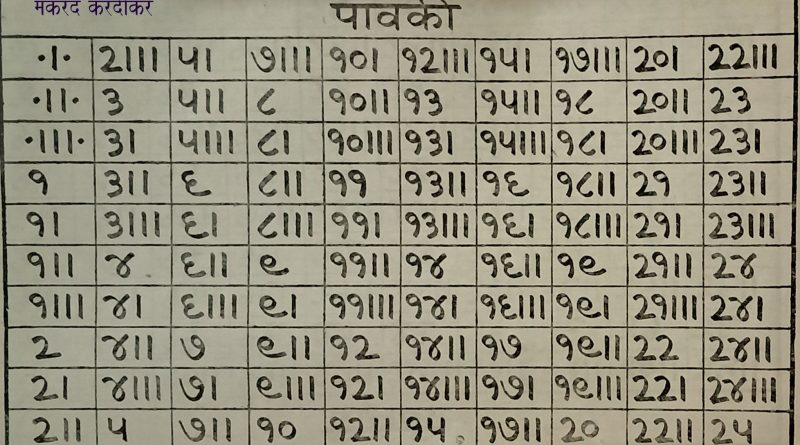 मकरंद करंदीकर
पावकी
·।· २॥। ५। ७॥। १०। १२॥। १५। १७॥। २०। २२॥।
·॥· ३ ५॥ ८ १०॥ १३ १५॥ १८ २०॥ २३
·॥।· ३। ५॥। ८। १०॥। १३। १५॥। १८। २०॥। २३।
१ ३॥ ६ ८॥ ११ १३॥ १६ १८॥ २१ २३॥
१। ३॥। ६। ८॥। ११। १३॥। १६। १८॥। २१। २३॥।
१॥ ४ ६॥ ९ ११॥ १४ १६॥ १९ २१॥ २४
१॥। ४। ६॥। ९। ११॥। १४। १६॥। १९। २१॥। २४।
२ ४॥ ७ ९॥ १२ १४॥ १७ १९॥ २२ २४॥
२। ४॥। ७। ९॥। १२। १४॥। १७। १९॥। २२। २४॥।
२॥ ५ ७॥ १० १२॥ १५ १७॥ २० २२॥ २५